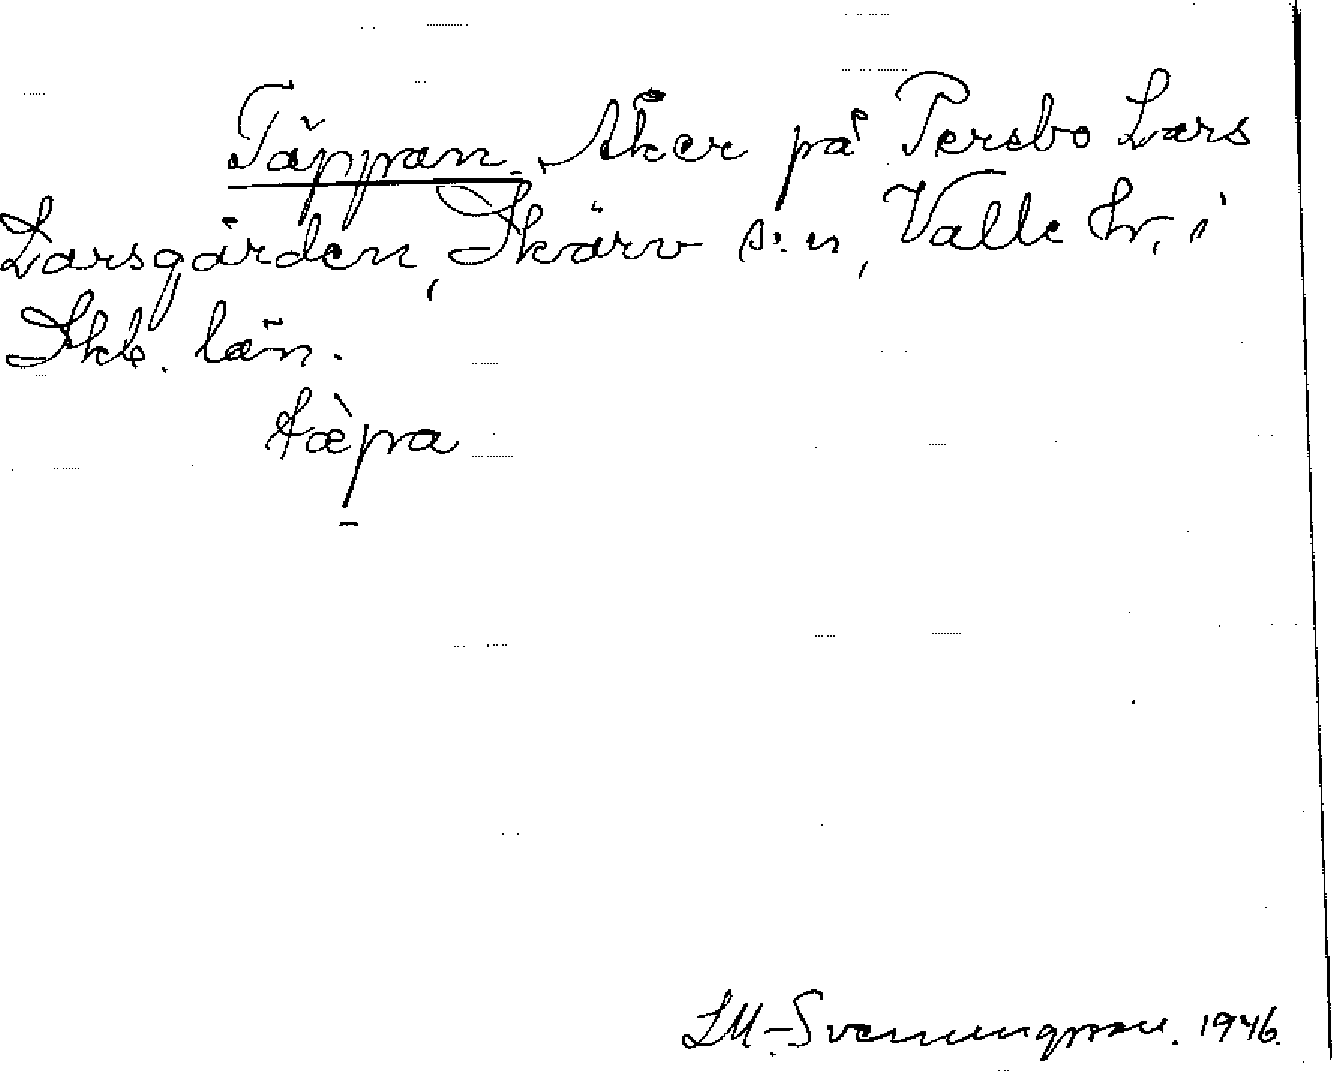 Täppan, Åker på Persbo Lars
Larsgården, Skärv s:n, Valle hr, i
Skb. län.
tæ̀pa
LM-Svenungsson. 1946.